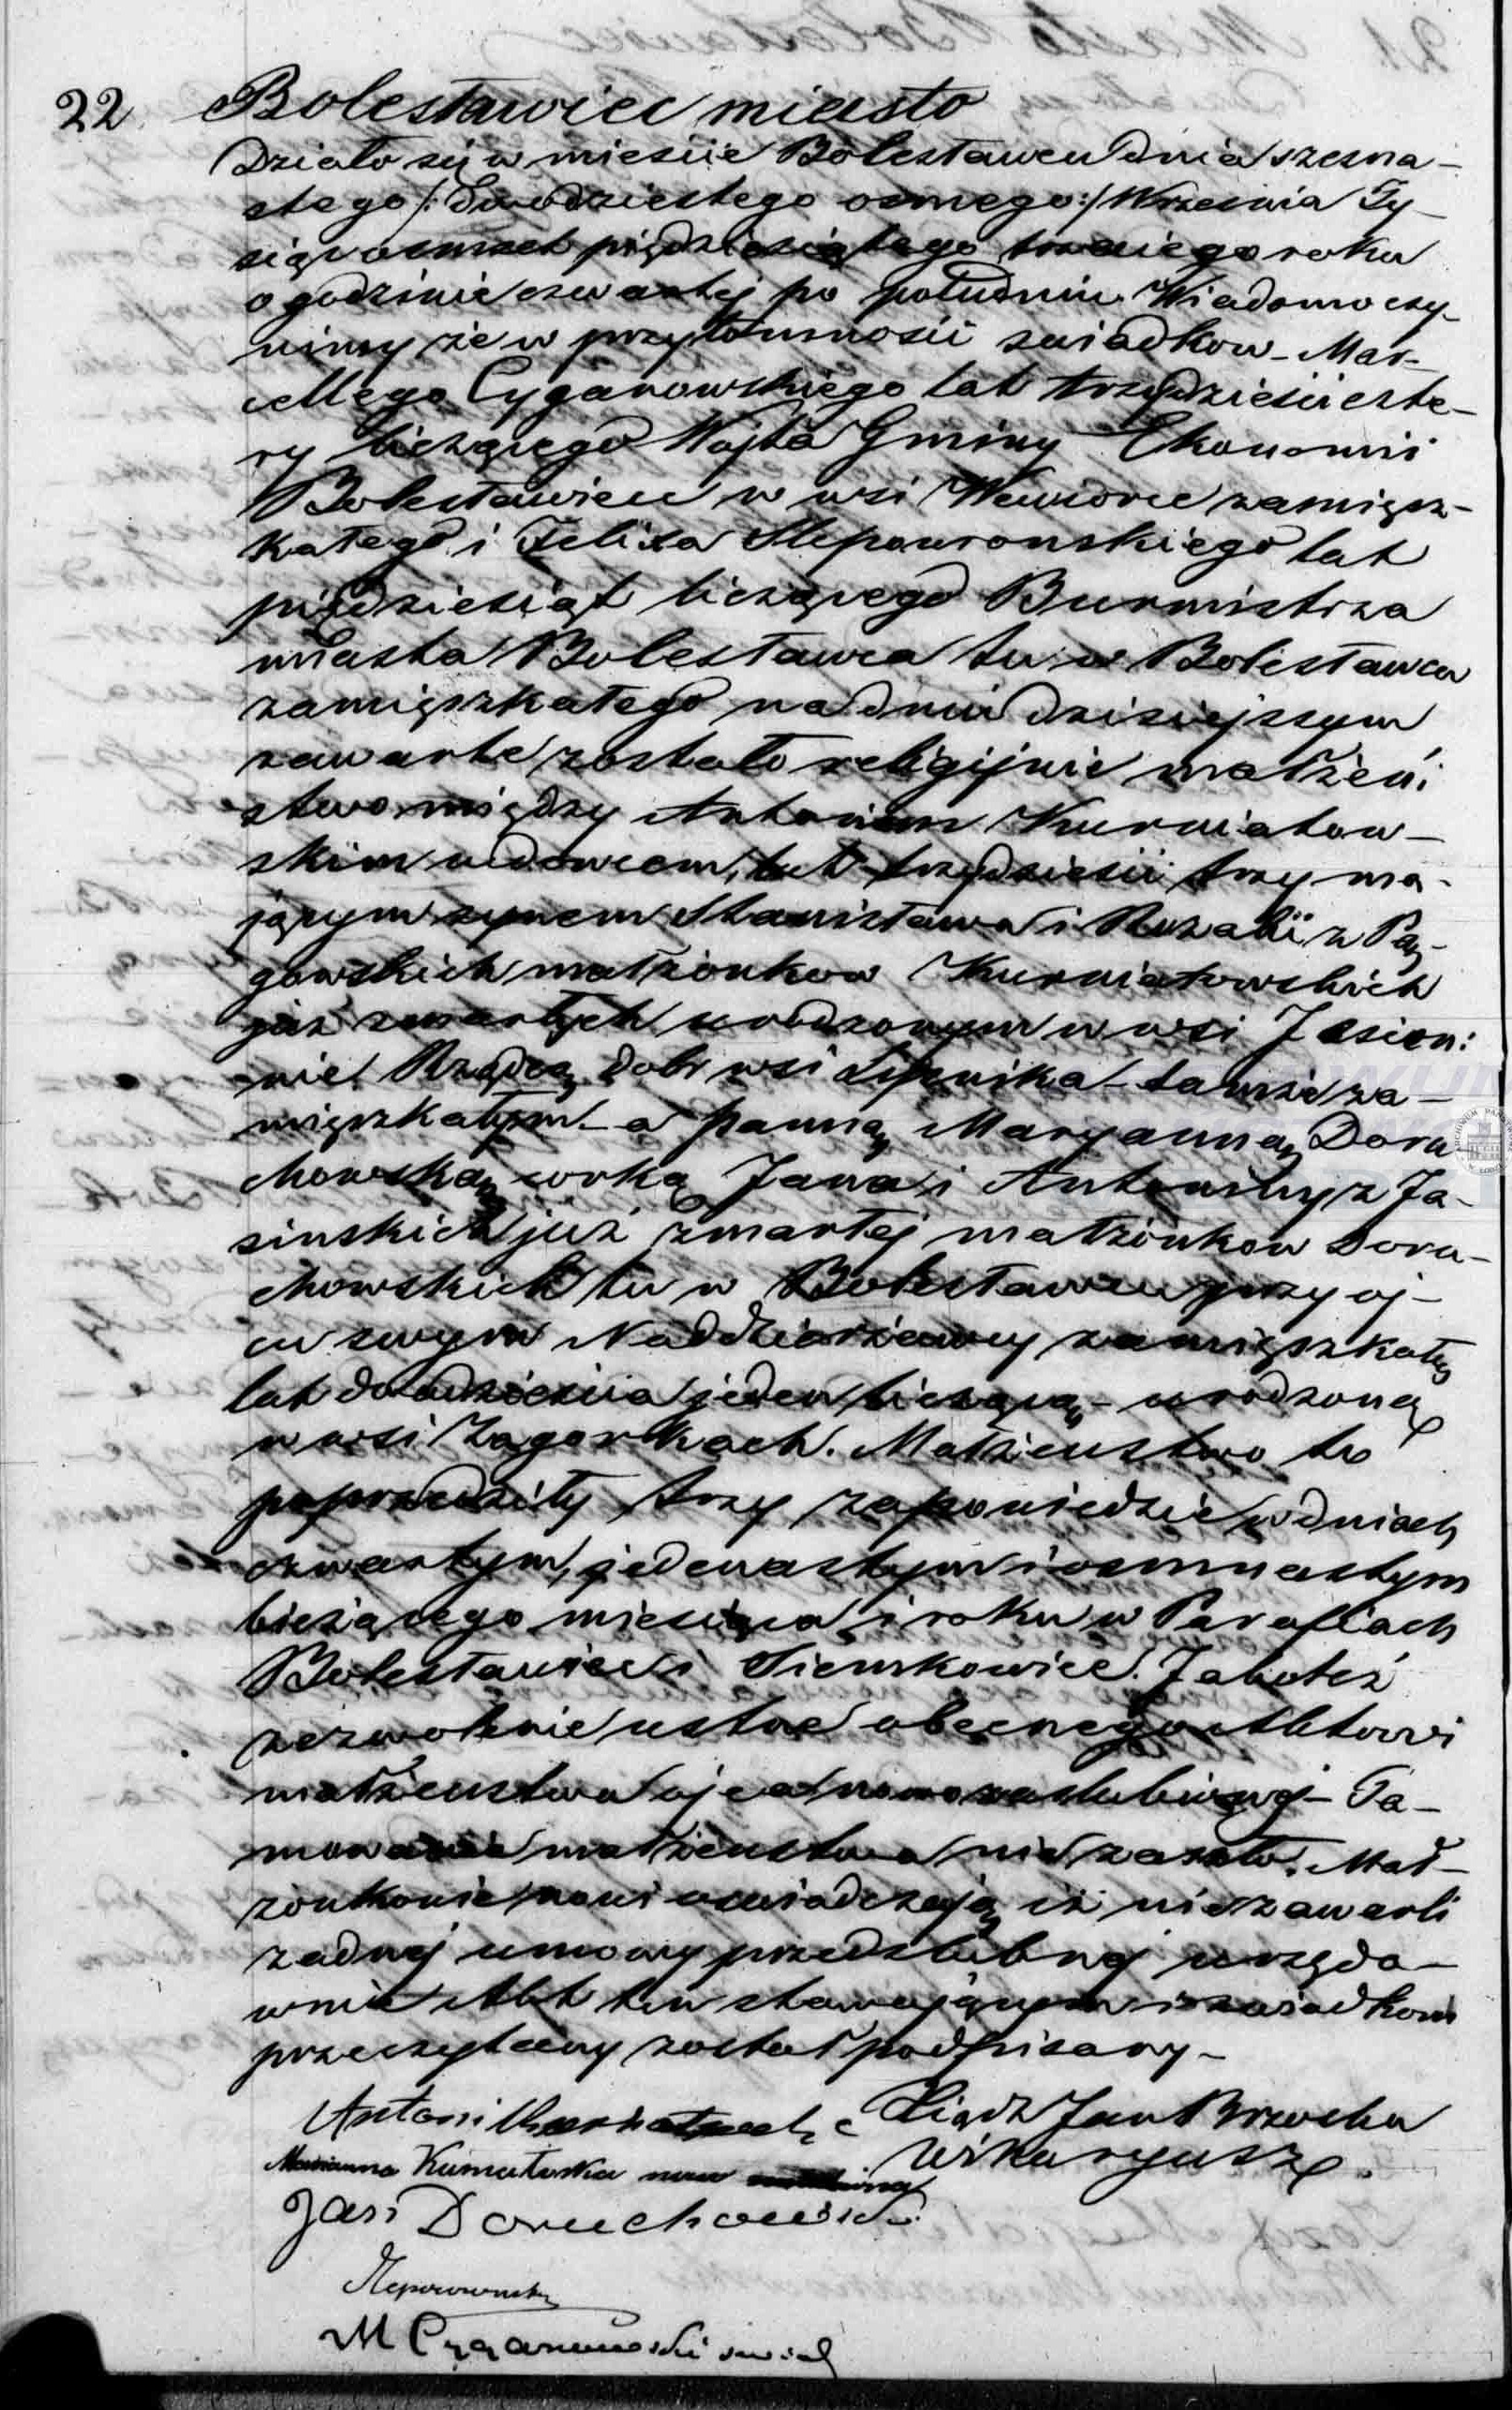 22. Bolesławiec miasto
Działo się w mieście Bolesławcu dnia szesna-
stego /: dwódziestego osmego :/ Września Ty-
siąc osmset pięćdziesiątego trzeciego roku
o godzinie czwartej po południu. Wiadomo czy-
nimy że w przytomności swiadkow - Mar-
cellego Cyganowskiego lat trzydzieści czte-
ry liczącego Wojta Gminy Ekonomii
Bolesławiec w wsi zamięsz-
kałego i Felixa Slepowronskiego lat
pięćdziesiąt liczącego Burmistrza
miasta Bolesławca tu w Bolesławcu
zamięszkałego na dniu dzisiejszym
zawarte zostało religijnie małżeń:
stwo między Antonim Kurniatow-
skim wdowcem, lat trzydzieści trzy ma-
jącym synem Stanisława i Rozalii z Pą-
gowskich małżonkow Kurniatowskich
już zmarłych urodzonym w wsi Jasion:
nie, Rządcą dobr wsi Lipnika - tamże za-
mięszkałym - a panną Maryanną Doru-
chowską corką Jana i Antoniny z Ja-
sinskich już zmartej małżonkow Doru-
chowskich tu w Bolesławcu przy oj-
cu swym Naddzierżawcy zamięszkałą
lat dwadzieścia jeden liczącą - urodzoną
w wsi Zagorkach. Małżeństwo to
poprzedziły trzy zapowiedzie w dniach
czwartym, jedenastym i osmnastym
bieżącego miesiąca i roku w Parafiach
Bolesławiec i Siemkowice. Jakoteż
zezwolenie ustne obecnego Aktowi
małżeństwa ojca nowozaslubionej - Ta-
mowanie małżeństwa nie zaszło. Mał-
żonkowie nowi oswiadczają iż nie zawarli
żadnej umowy przedslubnej urzędo-
wnie Akt ten stawającym i swiadkom
przeczytany został podpisany -
Antoni Kurnatowski Xiądz Jan Brzoska
Marianna Kurnatowska Wikaryusz.
Jan Doruchowski
Slepowronski
M Cyganowski swiad